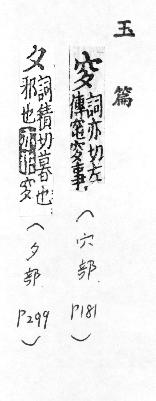 玉篇
穸詞亦切左
傳窀穸事
(穴部 P181)
夕詞積切暮也
邪也亦作穸
(夕部 P299)